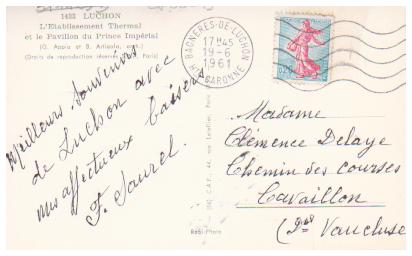 1433 LUCHON
L'Etablissement Thermal
et le Pavillon du Prince Impérial
(Droits de reproduction réservés Paris)
Meilleurs souvenirs
de Luchon avec
mes affectueux baisers
F. Saurel.
BAGNERES-DE-LUCHON
17H45
19-6
1961
GARONNE
0,20
Madame
Clémence Delaye
Chemin des courses
Cavaillon
Vaucluse
Réel-Photo